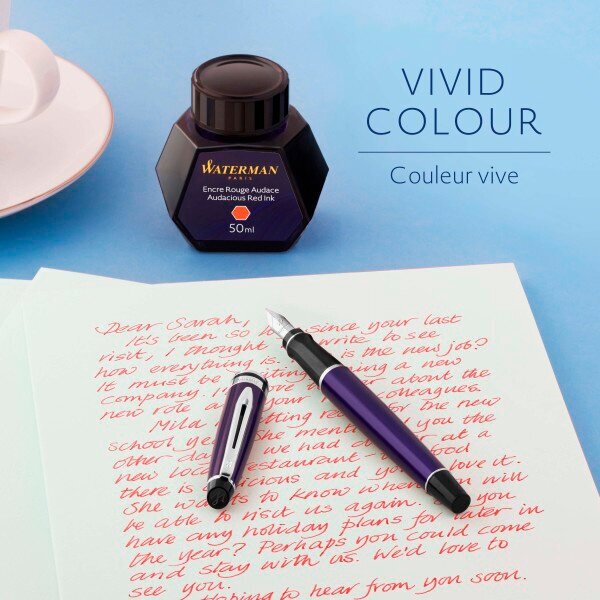 VIVID
COLOUR
Couleur vive
WATERMAN
PARIS
Encre Rouge Audace
Audacious Red Ink
50ml
Dear Sarah,
It's been so since your last
visit, I thought write to see
how everything is. is the new job?
It must be a new
company. I about the
new role your colleagues.
Mila for the new
school She you the
other day we had at a
new local restaurant - food
there is and love it.
She wants to know when will
be able to visit us again. you
have any holiday plans for later in
the year? Perhaps you could come
and stay with us. We'd love to
see you.
Hoping to hear from you soon.